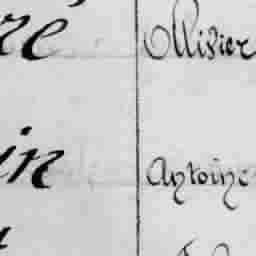 ré Ollivier
in Antoine